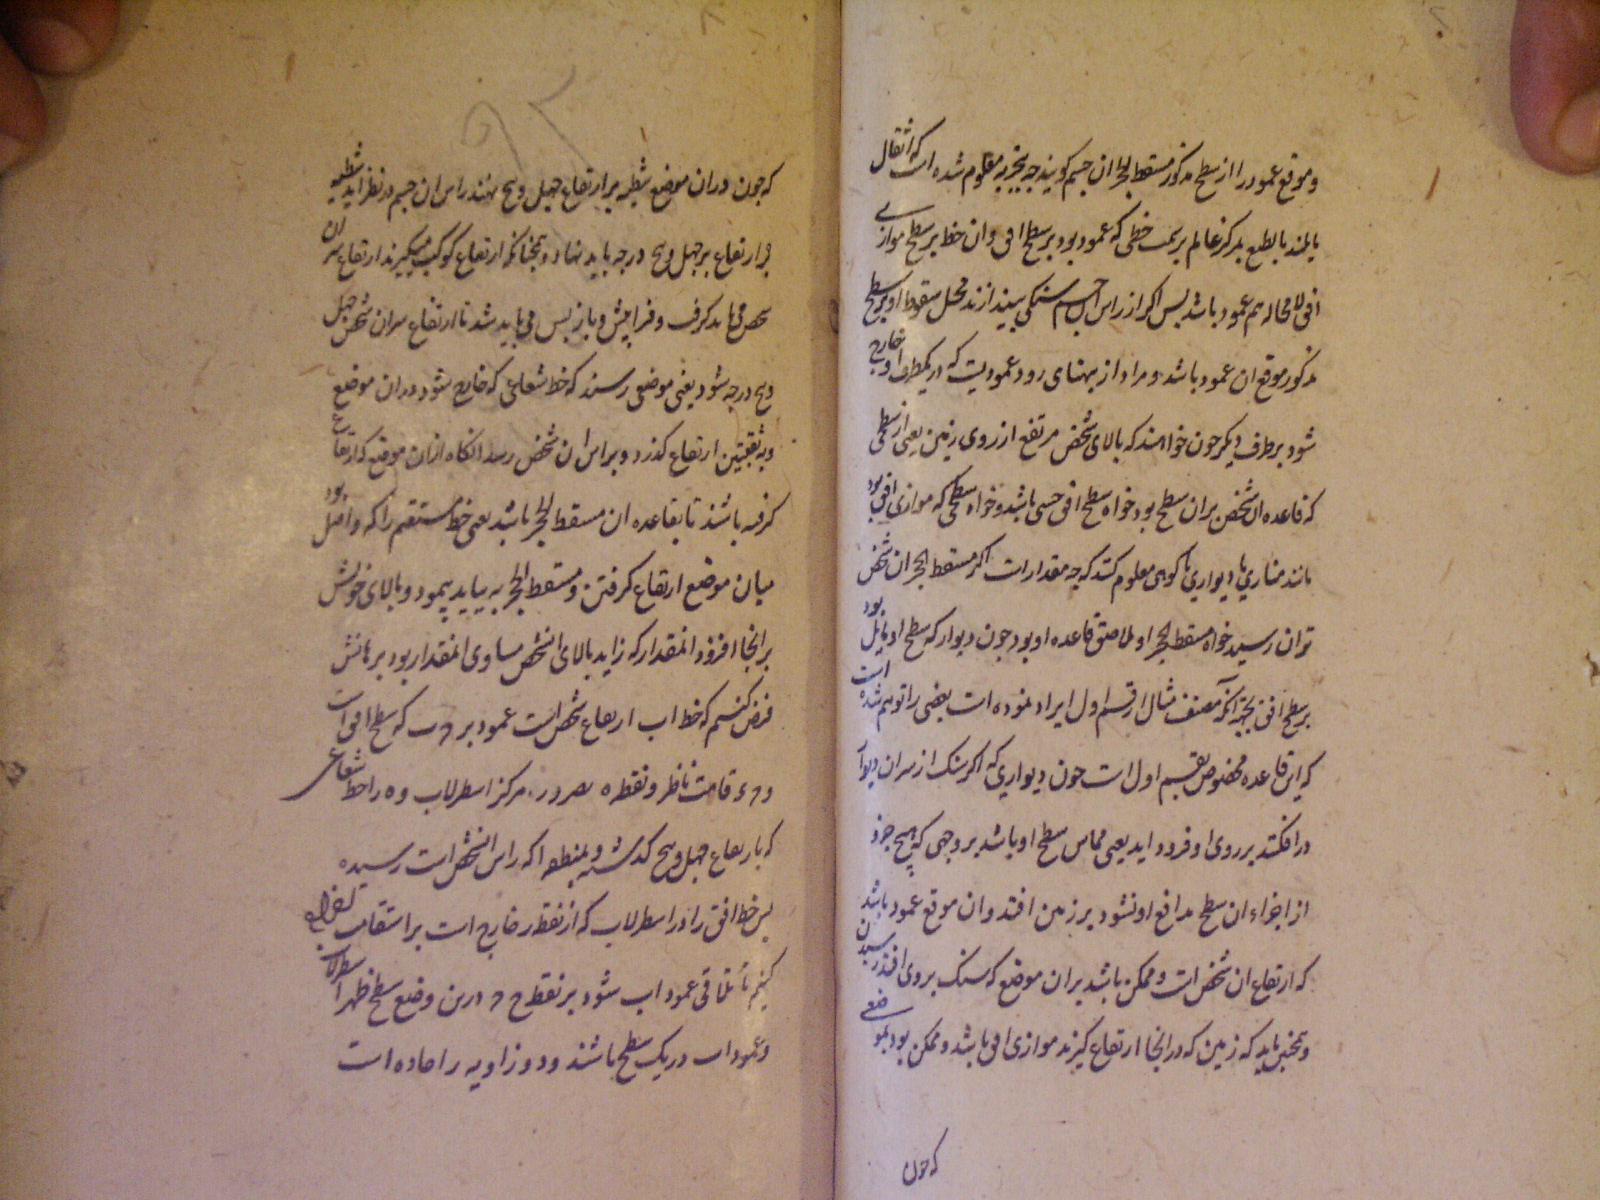 و موقع عمود را از سطح مذکور مسقط الحجر ان جسم کویند چه بتجربه معلوم شده است که اثقال
بالطبع بمرکز عالم بر سمت خطی که عمود بود بر سطح افق و ان خط بر سطح موازی
افق لا محاله هم عمود باشد پس اکر از راس ان جسم سنکی بیندازند محل سقوط او بر سطح
مذکور موقع ان عمود باشد و مراد از پهنای رود عمودیست که در یکطرف او خارج
شود بر طرف دیکر چون خواهند که بالای شخص مرتفع از روی زمین یعنی از سطحی
که قاعده ان شخص بران سطح بود خواه سطح افق حسی باشد و خواه سطحی که موازی افق بود
مانند مناری یا دیواری یا کوهی معلوم کنند که چه مقدار است اکر مسقط الحجر ان شخص
توان رسید خواه مسقط الحجر او ملاصق قاعده او بود چون دیوار که سطح او مایل بود
بر سطح افق بجهة انکه مصنف مثال از قسم اول ایراد نموده است بعضی را توهم شده است
که این قاعده مخصوص بقسم اول است چون دیواری که اکر سنک از سران دیوار
درافکنند بر روی او فرود اید یعنی مماس سطح او باشد بر وجهی که هیچ جزو
از اجزاء ان سطح مدافع او نشود بر زمین افتد و ان موقع عمود باشد
که ارتفاع ان شخص است و ممکن باشد بران موضع که سنک بروی افتد رسیدن
و همچنین باید که زمین که در انجا ارتفاع کیرند موازی افق باشد و ممکن بود بموضعی
که چون
که چون دران موضع شظیه بر ارتفاع چهل و پنج نهند راس ان جسم در نظر اید شظیه
بر ارتفاع بر چهل و پنج درجه باید نهاد و همچنانکه ارتفاع کوکب میکیرند ارتفاع سر ان
شخص می باید کرفت و فرا پیش و باز پس می باید شد تا ارتفاع سران شخص چهل
و پنج درجه شود یعنی موضعی رسند که خط شعاعی که خارج شود دران موضع
و بثقبتین ارتفاع کذرد و بر راس ان شخص رسد انکاه ازان موقع که ارتفاع
کرفته باشند تا بقاعده ان مسقط الحجر باشد یعنی خط مستقیم را که واصل بود
میان موضع ارتفاع کرفتن و مسقط الحجر بباید پیمود و بالای خویش
بر انجا افزود انمقدار که زاید بالای انشخص مساوی انمقدار بود برهانش
فرض کنیم که خط اب ارتفاع شخص است عمود بر ح ب که سطح افق است
و ح ء قامت ناظر و نقطه ه مرکز اسطرلاب و ه را خط شعاعی
که بارتفاع چهل و پنج کذشته و بنقطه ا که راس انشخص است رسیده
پس خط افق را در اسطرلاب که از نقطه ر خارج است بر استقامت
کنیم تا تلاقی عمود اب شود بر نقطه ح و درین وضع سطح ظهر اسطرلاب
و عمود اب در یک سطح باشند و دو زاویه را حاده است